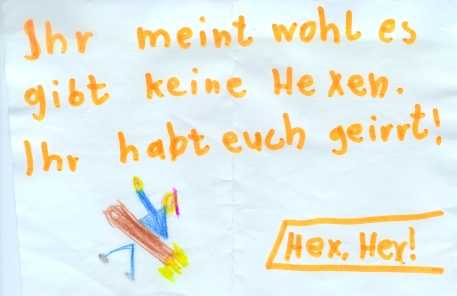 Ihr meint wohl es
gibt keine Hexen.
Ihr habt euch geirrt!
Hex, Hex!